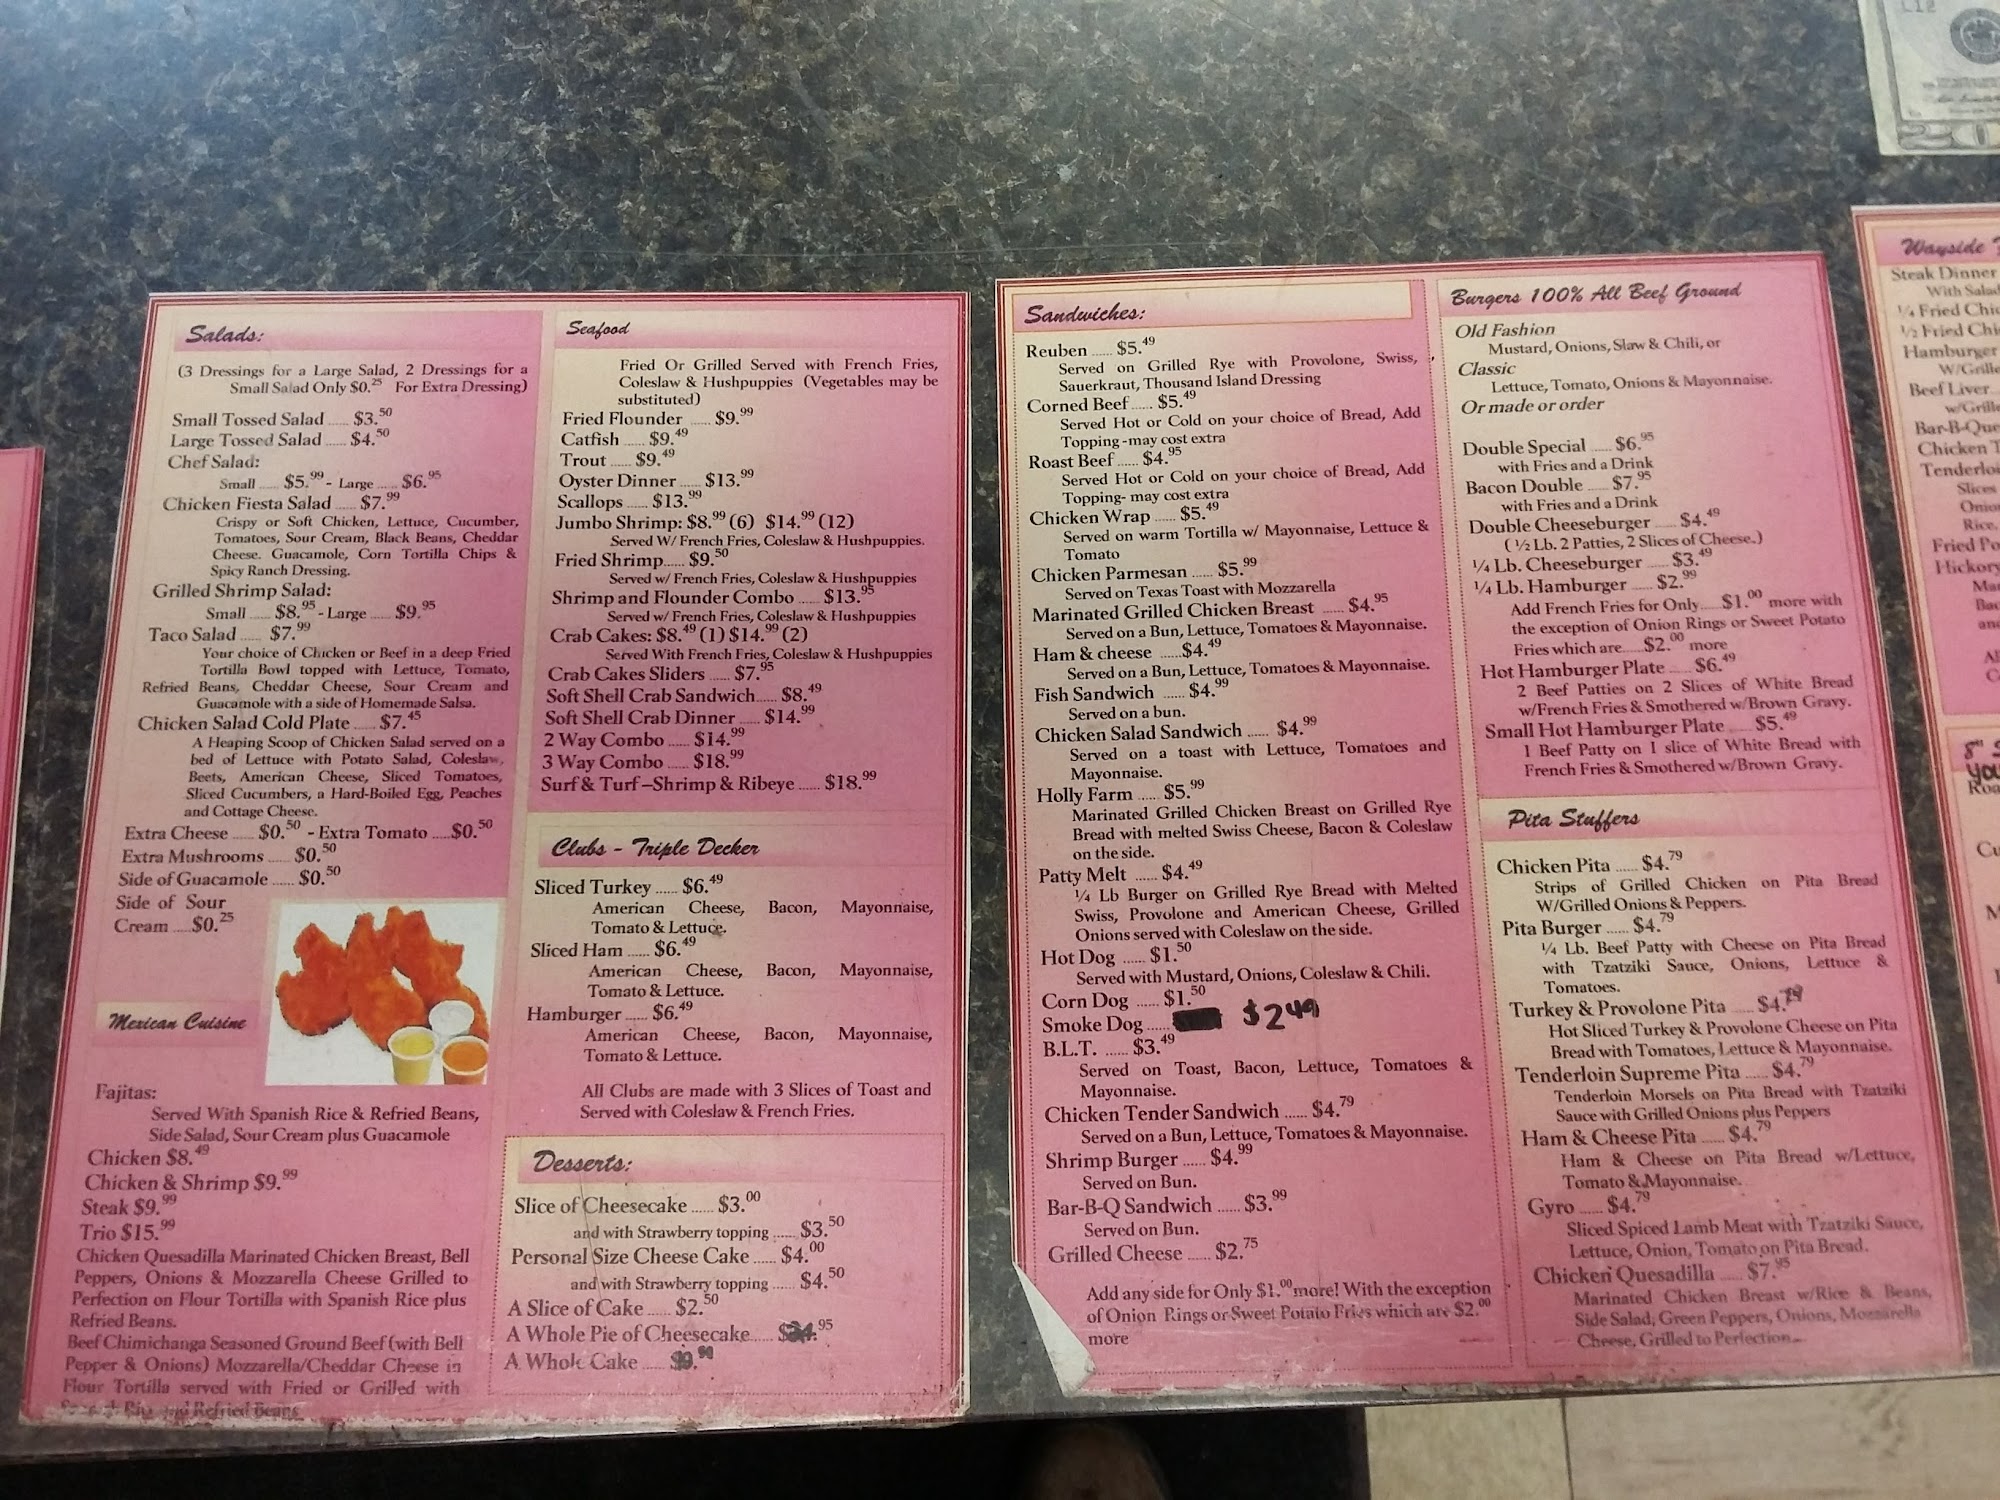 Salads:
(3 Dressings for a Large Salad, 2 Dressings for a
Small Salad Only $0.25 For Extra Dressing)
Small Tossed Salad ..... $3.50
Large Tossed Salad ..... $4.50
Chef Salad:
Small ..... $5.99 - Large ..... $6.95
Chicken Fiesta Salad ..... $7.99
Crispy or Soft Chicken, Lettuce, Cucumber,
Tomatoes, Sour Cream, Black Beans, Cheddar
Cheese. Guacamole, Corn Tortilla Chips &
Spicy Ranch Dressing.
Grilled Shrimp Salad:
Small ..... $8.95 - Large ..... $9.95
Taco Salad ..... $7.99
Your choice of Chicken or Beef in a deep Fried
Tortilla Bowl topped with Lettuce, Tomato,
Refried Beans, Cheddar Cheese, Sour Cream and
Guacamole with a side of Homemade Salsa.
Chicken Salad Cold Plate ..... $7.45
A Heaping Scoop of Chicken Salad served on a
bed of Lettuce with Potato Salad, Coleslaw,
Beets, American Cheese, Sliced Tomatoes,
Sliced Cucumbers, a Hard-Boiled Egg, Peaches
and Cottage Cheese.
Extra Cheese ..... $0.50 - Extra Tomato .....$0.50
Extra Mushrooms ..... $0.50
Side of Guacamole ..... $0.50
Side of Sour
Cream .....$0.25
Mexican Cuisine
Fajitas:
Served With Spanish Rice & Refried Beans,
Side Salad, Sour Cream plus Guacamole
Chicken $8.49
Chicken & Shrimp $9.99
Steak $9.99
Trio $15.99
Chicken Quesadilla Marinated Chicken Breast, Bell
Peppers, Onions & Mozzarella Cheese Grilled to
Perfection on Flour Tortilla with Spanish Rice plus
Refried Beans.
Beef Chimichanga Seasoned Ground Beef (with Bell
Pepper & Onions) Mozzarella/Cheddar Cheese in
Flour Tortilla served with Fried or Grilled with
and Refried Beans
Seafood
Fried Or Grilled Served with French Fries,
Coleslaw & Hushpuppies (Vegetables may be
substituted)
Fried Flounder ..... $9.99
Catfish ..... $9.49
Trout ..... $9.49
Oyster Dinner ..... $13.99
Scallops ..... $13.99
Jumbo Shrimp: $8.99 (6) $14.99 (12)
Served W/ French Fries, Coleslaw & Hushpuppies.
Fried Shrimp..... $9.50
Served w/ French Fries, Coleslaw & Hushpuppies
Shrimp and Flounder Combo ..... $13.95
Served w/ French Fries, Coleslaw & Hushpuppies
Crab Cakes: $8.49 (1) $14.99 (2)
Served With French Fries, Coleslaw & Hushpuppies
Crab Cakes Sliders ..... $7.95
Soft Shell Crab Sandwich..... $8.49
Soft Shell Crab Dinner ..... $14.99
2 Way Combo ..... $14.99
3 Way Combo ..... $18.99
Surf & Turf –Shrimp & Ribeye ..... $18.99
Clubs - Triple Decker
Sliced Turkey ..... $6.49
American Cheese, Bacon, Mayonnaise,
Tomato & Lettuce.
Sliced Ham ..... $6.49
American Cheese, Bacon, Mayonnaise,
Tomato & Lettuce.
Hamburger ..... $6.49
American Cheese, Bacon, Mayonnaise,
Tomato & Lettuce.
All Clubs are made with 3 Slices of Toast and
Served with Coleslaw & French Fries.
Desserts:
Slice of Cheesecake ..... $3.00
and with Strawberry topping ..... $3.50
Personal Size Cheese Cake ..... $4.00
and with Strawberry topping ..... $4.50
A Slice of Cake ..... $2.50
A Whole Pie of Cheesecake..... .95
A Whole Cake .....
Sandwiches:
Reuben ..... $5.49
Served on Grilled Rye with Provolone, Swiss,
Sauerkraut, Thousand Island Dressing
Corned Beef ..... $5.49
Served Hot or Cold on your choice of Bread, Add
Topping -may cost extra
Roast Beef ..... $4.95
Served Hot or Cold on your choice of Bread, Add
Topping- may cost extra
Chicken Wrap ..... $5.49
Served on warm Tortilla w/ Mayonnaise, Lettuce &
Tomato
Chicken Parmesan ..... $5.99
Served on Texas Toast with Mozzarella
Marinated Grilled Chicken Breast ..... $4.95
Served on a Bun, Lettuce, Tomatoes & Mayonnaise.
Ham & cheese .....$4.49
Served on a Bun, Lettuce, Tomatoes & Mayonnaise.
Fish Sandwich ..... $4.99
Served on a bun.
Chicken Salad Sandwich ..... $4.99
Served on a toast with Lettuce, Tomatoes and
Mayonnaise.
Holly Farm ..... $5.99
Marinated Grilled Chicken Breast on Grilled Rye
Bread with melted Swiss Cheese, Bacon & Coleslaw
on the side.
Patty Melt ..... $4.49
¼ Lb Burger on Grilled Rye Bread with Melted
Swiss, Provolone and American Cheese, Grilled
Onions served with Coleslaw on the side.
Hot Dog ..... $1.50
Served with Mustard, Onions, Coleslaw & Chili.
Corn Dog ..... $1.50
Smoke Dog ..... $2 49
B.L.T. ..... $3.49
Served on Toast, Bacon, Lettuce, Tomatoes &
Mayonnaise.
Chicken Tender Sandwich ..... $4.79
Served on a Bun, Lettuce, Tomatoes & Mayonnaise.
Shrimp Burger ..... $4.99
Served on Bun.
Bar-B-Q Sandwich ..... $3.99
Served on Bun.
Grilled Cheese ..... $2.75
Add any side for Only $1.00 more! With the exception
of Onion Rings or Sweet Potato Fries which are $2.00
more
Burgers 100% All Beef Ground
Old Fashion
Mustard, Onions, Slaw & Chili, or
Classic
Lettuce, Tomato, Onions & Mayonnaise.
Or made or order
Double Special ..... $6.95
with Fries and a Drink
Bacon Double ..... $7.95
with Fries and a Drink
Double Cheeseburger ..... $4.49
( ½ Lb. 2 Patties, 2 Slices of Cheese.)
¼ Lb. Cheeseburger ..... $3.49
¼ Lb. Hamburger ..... $2.99
Add French Fries for Only.....$1.00 more with
the exception of Onion Rings or Sweet Potato
Fries which are.....$2.00 more
Hot Hamburger Plate ..... $6.49
2 Beef Patties on 2 Slices of White Bread
w/French Fries & Smothered w/Brown Gravy.
Small Hot Hamburger Plate ..... $5.49
1 Beef Patty on 1 slice of White Bread with
French Fries & Smothered w/Brown Gravy.
Pita Stuffers
Chicken Pita ..... $4.79
Strips of Grilled Chicken on Pita Bread
W/Grilled Onions & Peppers.
Pita Burger ..... $4.79
¼ Lb. Beef Patty with Cheese on Pita Bread
with Tzatziki Sauce, Onions, Lettuce &
Tomatoes.
Turkey & Provolone Pita ..... $4.79
Hot Sliced Turkey & Provolone Cheese on Pita
Bread with Tomatoes, Lettuce & Mayonnaise.
Tenderloin Supreme Pita ..... $4.79
Tenderloin Morsels on Pita Bread with Tzatziki
Sauce with Grilled Onions plus Peppers
Ham & Cheese Pita ..... $4.79
Ham & Cheese on Pita Bread w/Lettuce,
Tomato & Mayonnaise.
Gyro ..... $4.79
Sliced Spiced Lamb Meat with Tzatziki Sauce,
Lettuce, Onion, Tomato on Pita Bread.
Chicken Quesadilla ..... $7.95
Marinated Chicken Breast w/Rice & Beans,
Side Salad, Green Peppers, Onions, Mozzarella
Cheese, Grilled to Perfection...
L12
20
Wayside
Steak Dinner
With Salad
¼ Fried
½ Fried
Hamburger
W/Grille
Beef Liver
Bar-B-Que
Chicken
Slices
Rice.
Fried
Hickory
and
8"